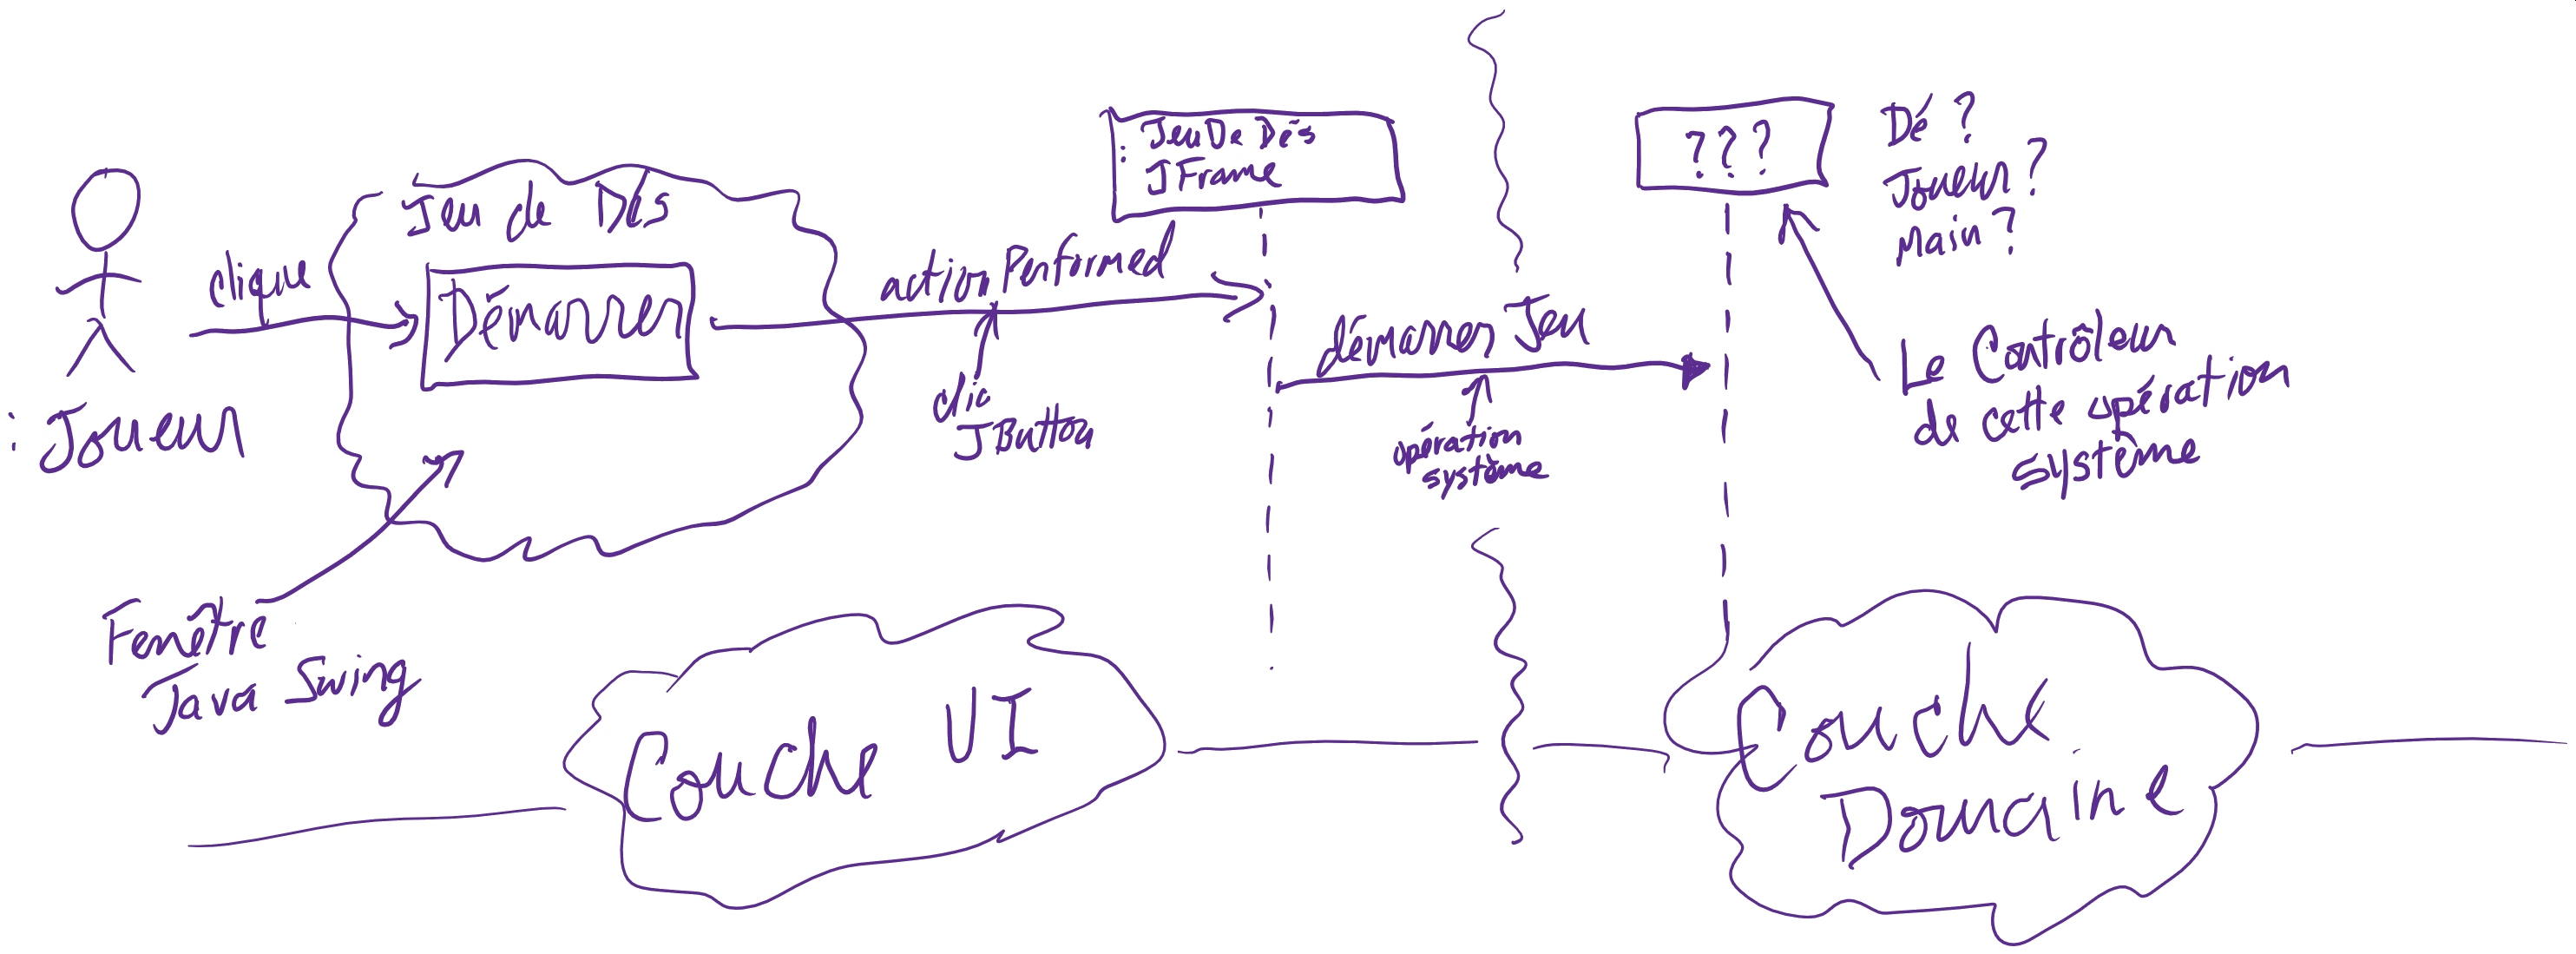 : Joueur
clique
Jeu de Dés
Démarrer
Fenêtre
Java Swing
actionPerformed
clic
JButton
: JeuDeDés
JFrame
démarrerJeu
opération
système
???
Dé ?
Joueur ?
Main ?
Le Contrôleur
de cette opération
système
Couche UI
Couche
Domaine